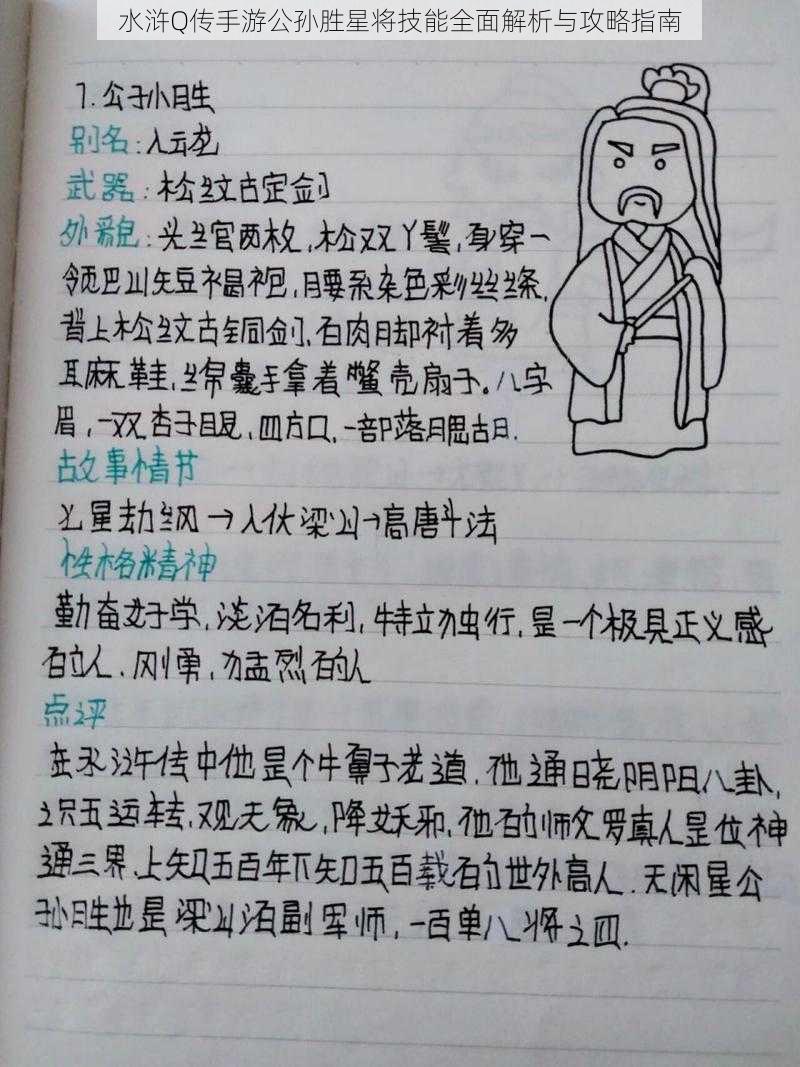 水浒Q传手游公孙胜星将技能全面解析与攻略指南
7.公孙胜
别名:入云龙
武器:松纹古定剑
外貌:头绾官两枚,松双丫髻,身穿一
领巴山短褐袍,腰系杂色彩丝绦,
背上松纹古铜剑,白肉脚衬着多
耳麻鞋,绵囊手拿着鳖壳扇子。八字
眉,一双杏子眼,四方口,一部落腮胡.
故事情节
七星劫纲→入伙梁山→高唐斗法
性格精神
勤奋好学,淡泊名利,特立独行,是一个极具正义感
的人.刚勇,猛烈的人
点评
在水浒传中他是个牛鼻子老道.他通晓阴阳八卦,
识五运转,观天象,降妖邪,他的师父罗真人是位神
通三界、上知五百年下知五百载的世外高人.天闲星公
孙胜也是梁山泊副军师,一百单八将之四.